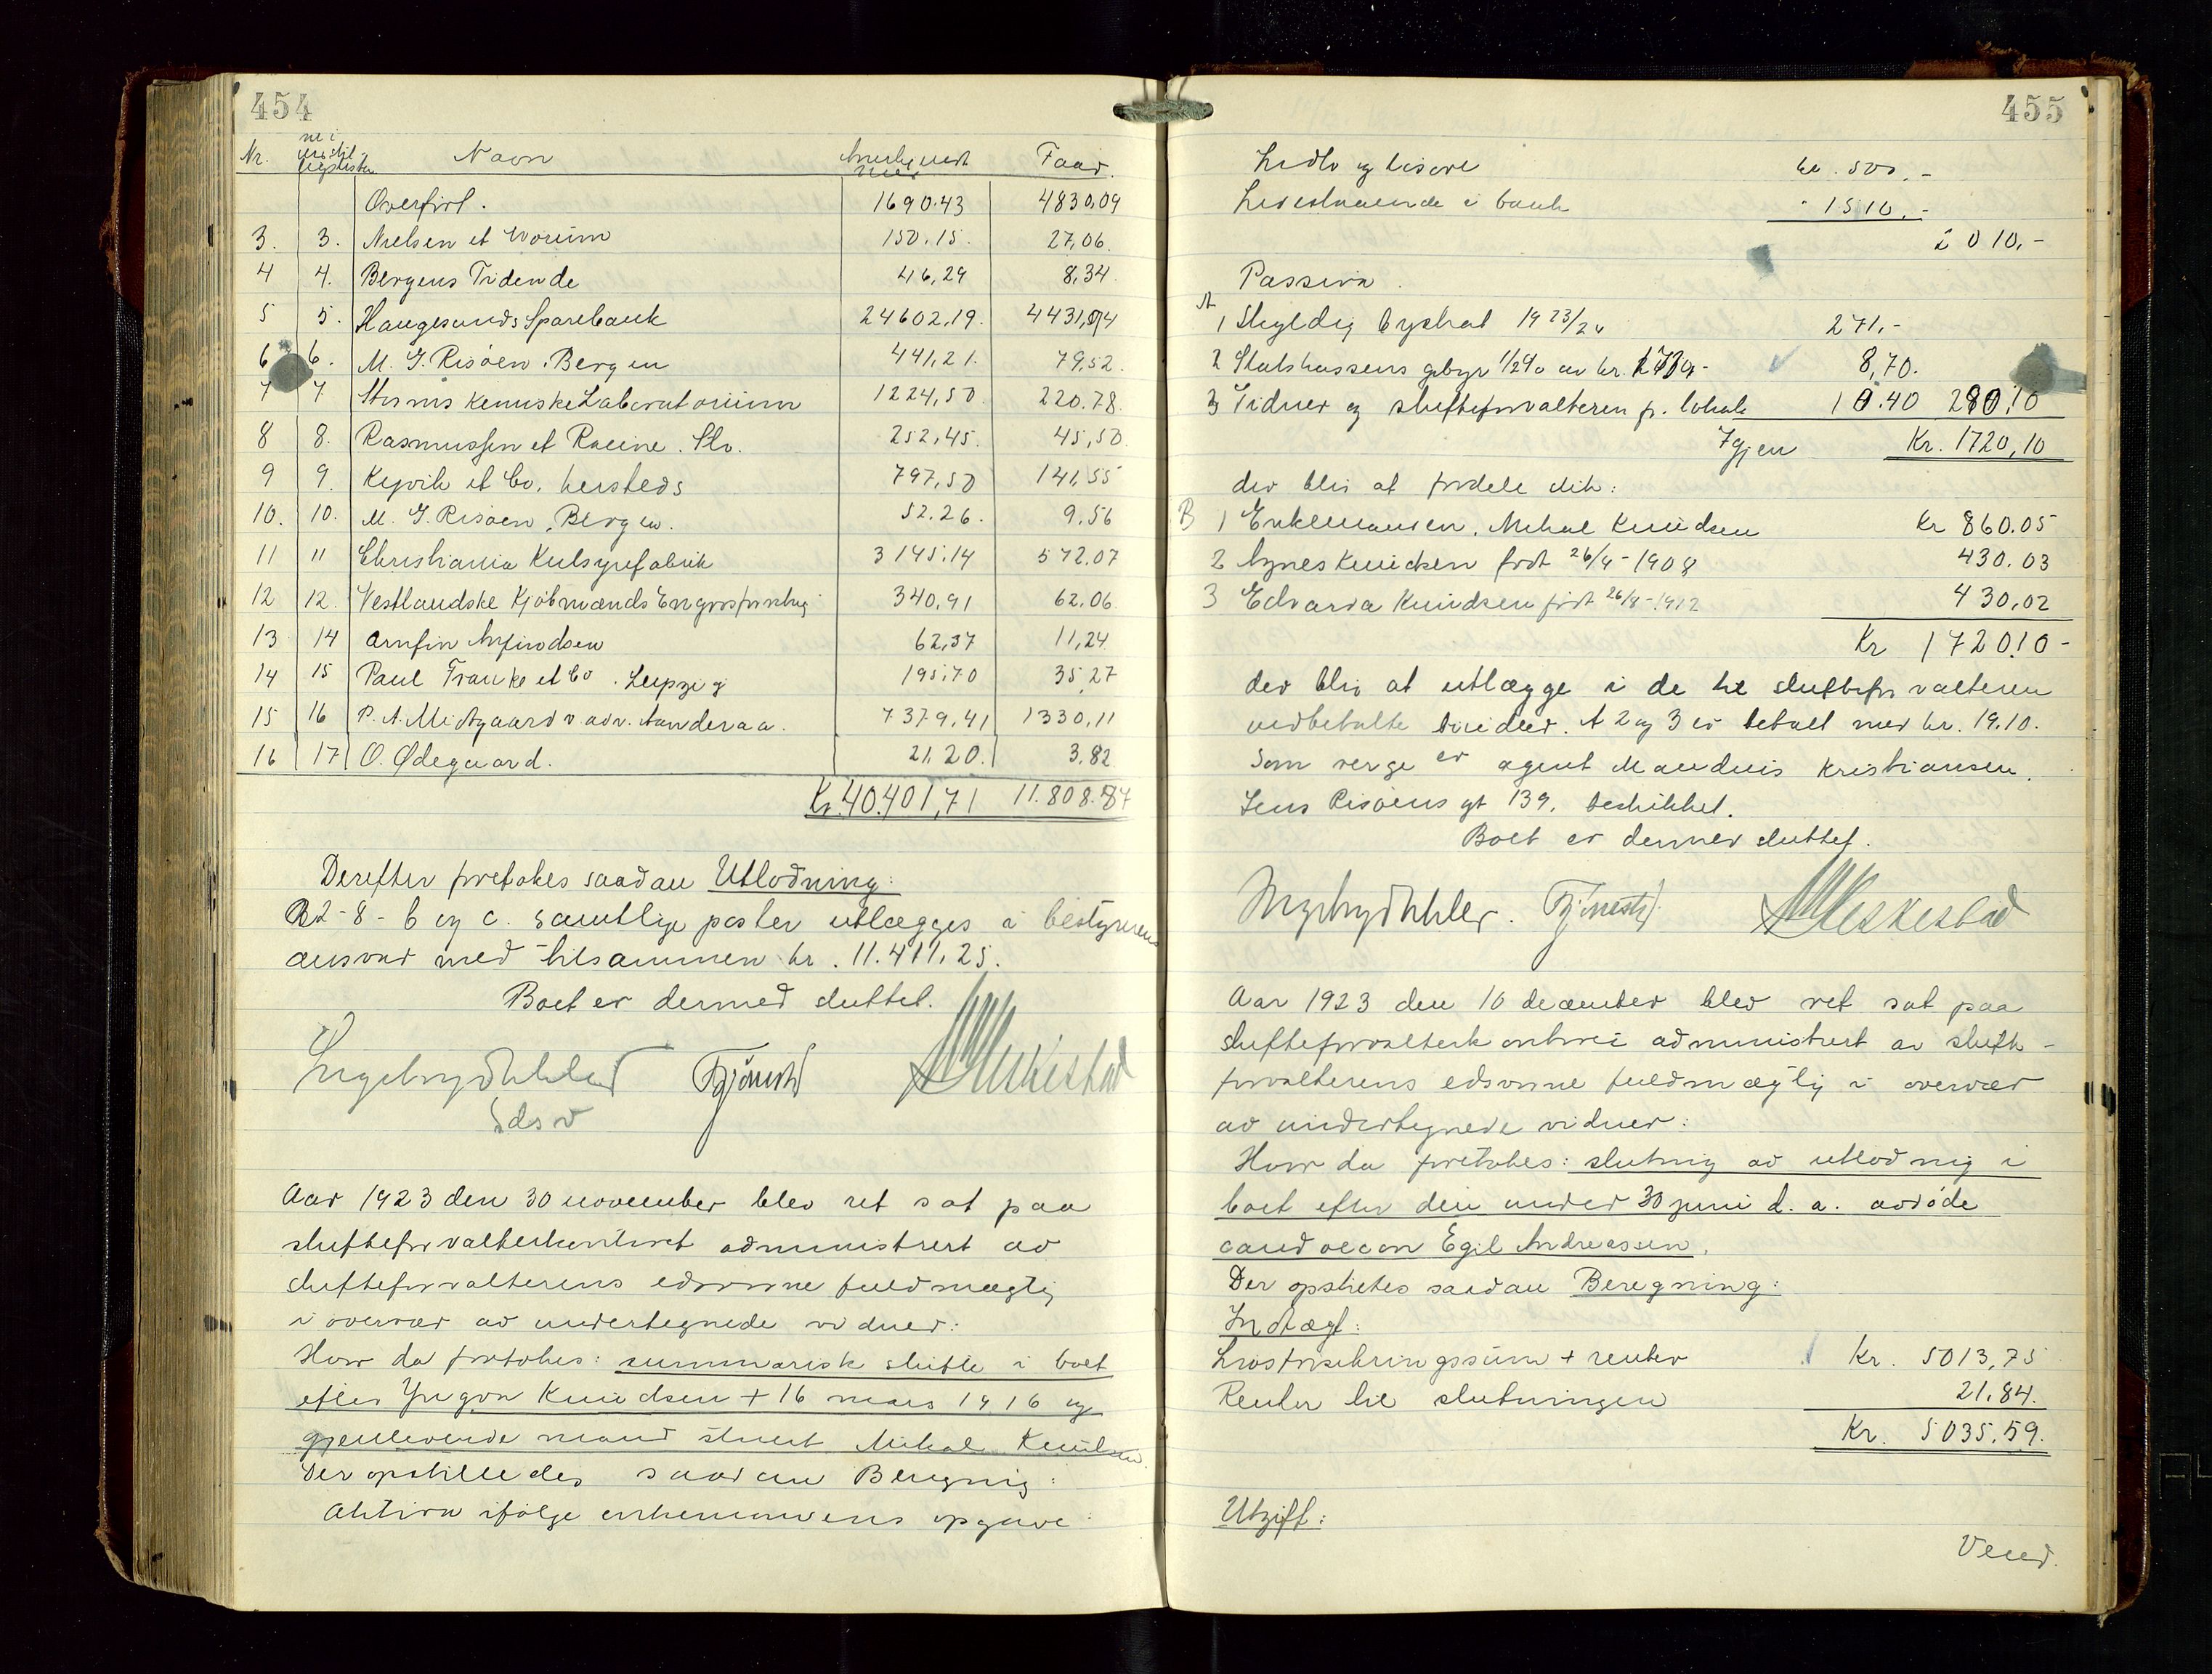 454
Nr. Navn Faar.
Overført. 1690.43 4830,09
3. 3. Nielsen et Worum 150.15. 27,06.
4 4. Bergens Tidende 46,29 8,34.
5 5. Haugesunds Sparebank 24602,19. 4431,04
6 6. M. G. Risøen. Bergen 441,21. 79,52.
7 7. Storms kemiske Laboratorium 1224,50 220.78.
8 8. Rasmussen et Racine. Sto. 252,45. 45,50.
9 9. et Co. 797,50 141,55
10. 10. M. G. Risøen, Bergen. 52.26. 9,56
11 11 Christiania Kulsyrefabrik 3145.14 572.07
12 12. Vestlandske Kjøbmænds Engrosforretng 340,91 62,06.
13 14 Arnfin Arfindsen 62,37 11,24.
14 15 Paul Franke et Co. Leipzig 195,70 35,27
15 16 P. A. Midtgaard v adv. Aanderaa. 7379,41 1330,11
16 17 O. Ødegaard. 21.20. 3,82
Kr. 40.401,71 11.808.87
Derefter foretokes saadan Utlodning:
B2-8-b og c. samtlige poster utlægges i bestyrerens
ansvar med tilsammen kr. 11.411,25.
Boet er dermed sluttet.
Edsv
Aar 1923 den 30 november blev ret sat paa
skifteforvalterkontoret administrert av
skifteforvalterens edsvorne fuldmægtig
i overvær av undertegnede vidner:
Hvor da foretokes: summarisk skifte i boet
efter Knudsen + 16 mars 1916 og
gjenlevende mand Mikal Knudsen.
Der opstilledes saadan Beregning:
Aktiva ifølge enkemandens opgave:
455
Indbo og løsøre kr. 500,-
Indestaaende i bank " 1510,-
2010,-
Passiva.
A
1 Skyldig byskat 1923/24 271,-
2 Statskassens gebyr 1/2% av kr. 8,70.
3 Vidner og skifteforvalteren f. lokale 10.40 290,10
Igjen Kr. 1720,10
der blir at fordele slik:
B 1 Enkemanden, Mikal Knudsen Kr 860.05
2 Agnes Knudsen født 26/4-1908 430.03
3 Edvarda Knudsen født 26/8-1912 430,02
Kr 1720.10-
der blir at utlægge i de til skifteforvalteren
indbetalte midler. A 2 og 3 er betalt med kr. 19,10.
Som verge er agent Maudnis Kristiansen,
Jens Risøens gt 139, beskikket.
Boet er dermed sluttet.
Aar 1923 den 10 december blev ret sat paa
skifteforvalterkontoret administrert av skifte-
forvalterens edsvorne fuldmægtig i overvær
av undertegnede vidner:
Hvor da foretokes: slutning av utlodning i
boet efter den under 30 juni d. a. avdøde
cand oecon Egil Andreassen.
Der opsattes saadan Beregning:
Indtægt:
Livsforsikringssum + renter Kr. 5013,75
Renter til slutningen 21.84.
Kr. 5035,59.
Utgift:
Vend.